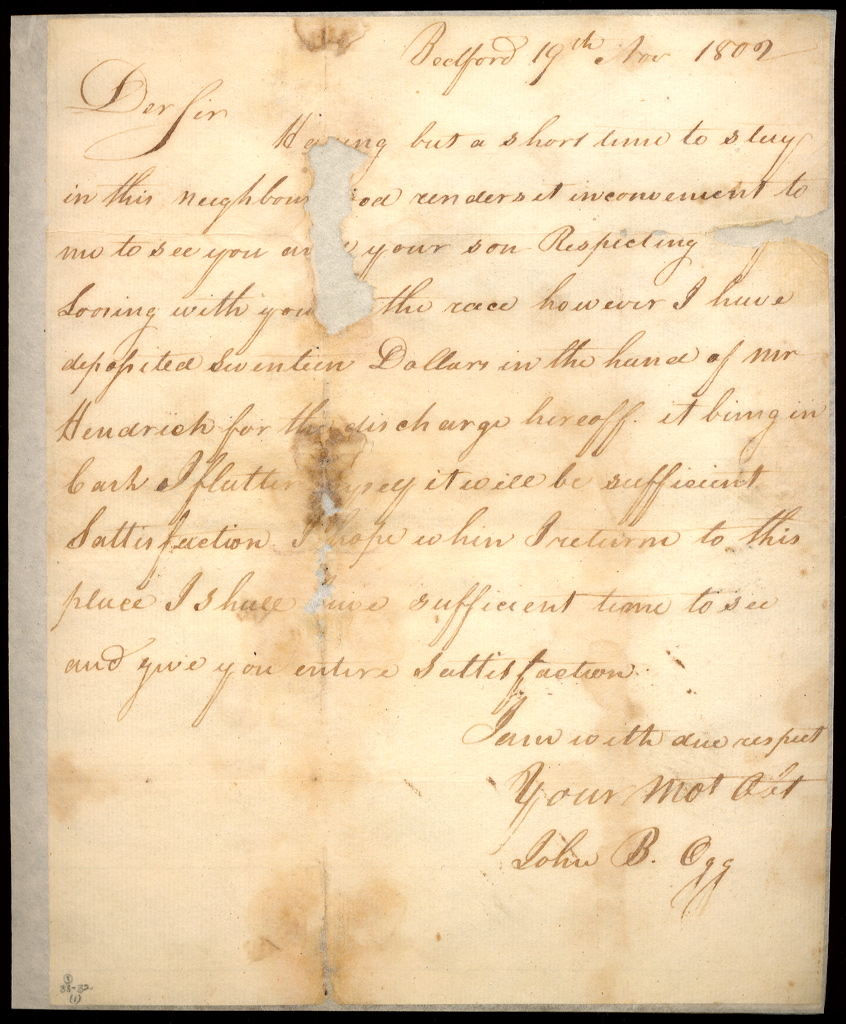 Bedford 19th Nov 1802
Der Sir
Ha ing but a short time to stay
in this neighbour ood renders it inconvenient to
me to see you an your son Respecting
Loosing with you the race however I have
deposited seventeen Dollars in the hand of mr
Hendrich for the discharge hereoff. it being in
Cash I flatter myself it will be sufficient
Sattisfaction I hope when I return to this
place I shall have sufficient time to see
and give you entire sattisfaction.
I am with due respect
Your Mot Obt
John B. Ogg
38-32
(1)